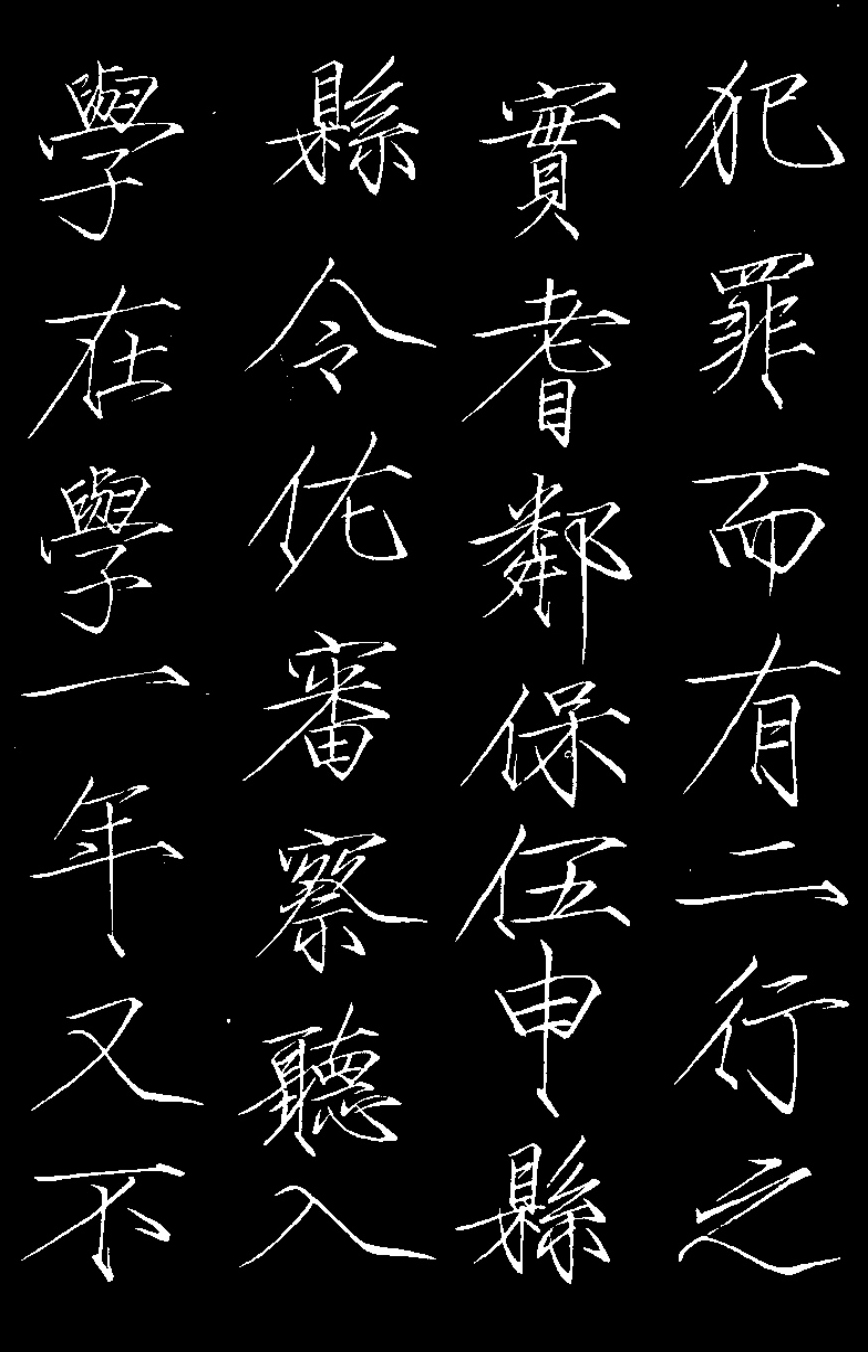 犯罪而有二行之
實耆鄰保伍申縣
縣令佐審察聽入
學在學一年又不